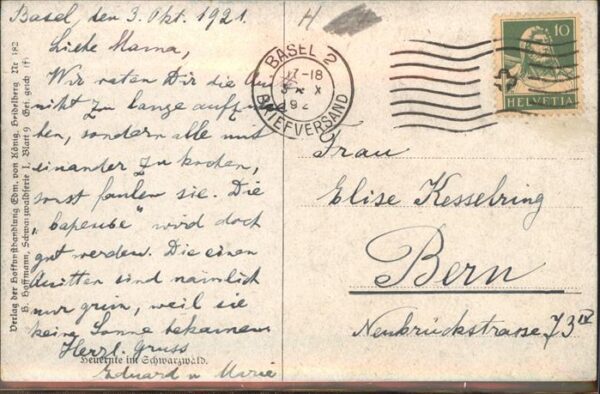 Basel, den 3. Okt. 1921.
Liebe Mama,
Wir raten Dir die
nicht zu lange aufzuhe-
ben, sondern alle mit
einander zu kochen,
sonst faulen sie. Die
" wird doch
gut werden. Die einen
Quitten sind nämlich
nur grün, weil sie
keine Sonne bekamen
Herzl. Gruss
Eduard u Marie
Heuernte im Schwarzwald.
Verlag der Hofkunsthandlung Edm. von König, Heidelberg Nr 182
H. Hoffmann, Schwarzwaldserie I, Blatt 9 Ges. gesch.
H
BASEL 2
-18
3 X
192
BRIEFVERSAND
10
HELVETIA
Frau
Elise Kesselring
Bern
Neubrückstrasse 73 IV